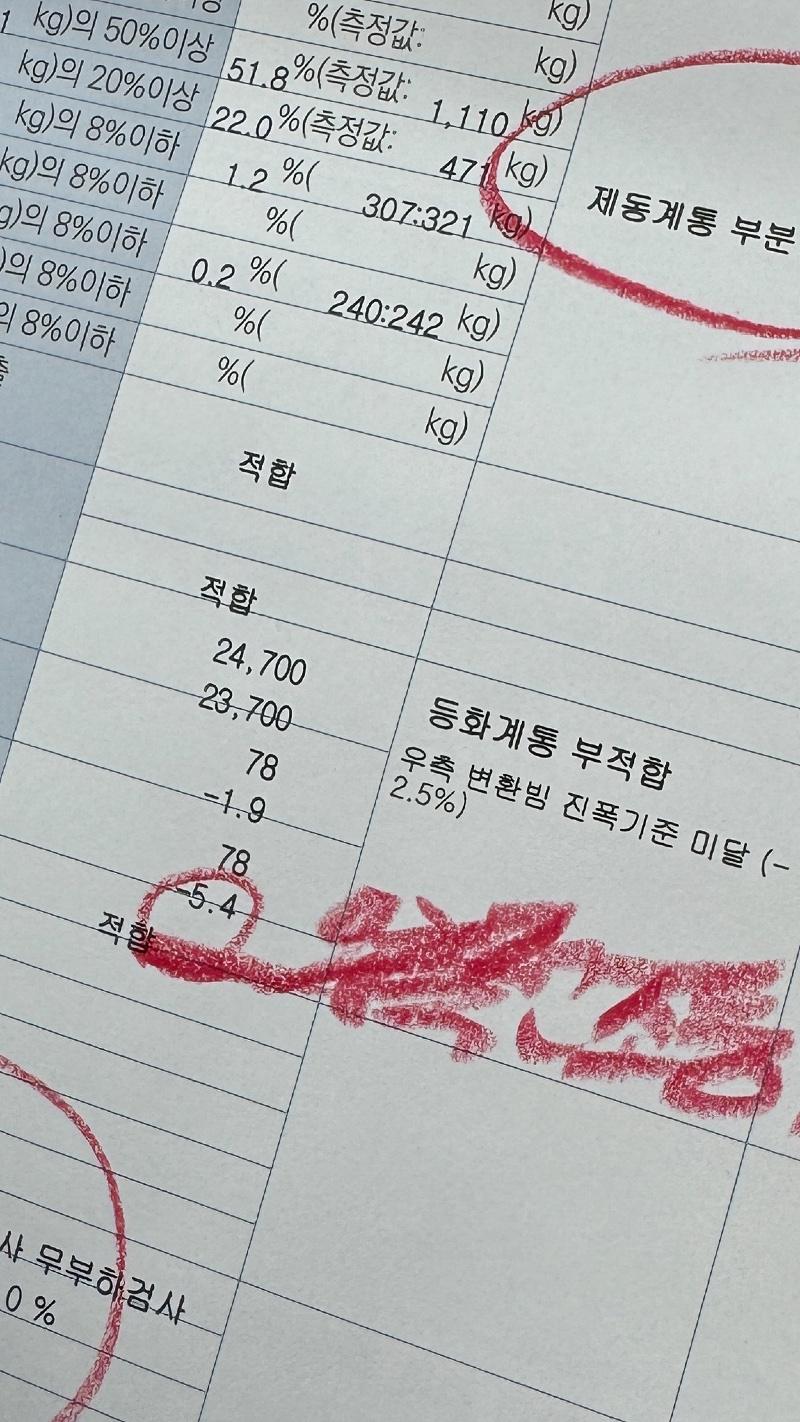 kg)
%(측정값: kg)
kg)의 50%이상 51.8%(측정값: 1,110 kg)
kg)의 20%이상 22.0%(측정값: 471 kg)
kg)의 8%이하 1.2 %( 307:321 kg)
kg)의 8%이하 %( kg)
g)의 8%이하 0.2 %( 240:242 kg)
)의 8%이하 %( kg)
의 8%이하 %( kg)
제동계통 부분
적합
적합
24,700
23,700
78
-1.9
78
-5.4
적합
등화계통 부적합
우측 변환빔 진폭기준 미달 (-
2.5%)
사 무부하검사
0 %